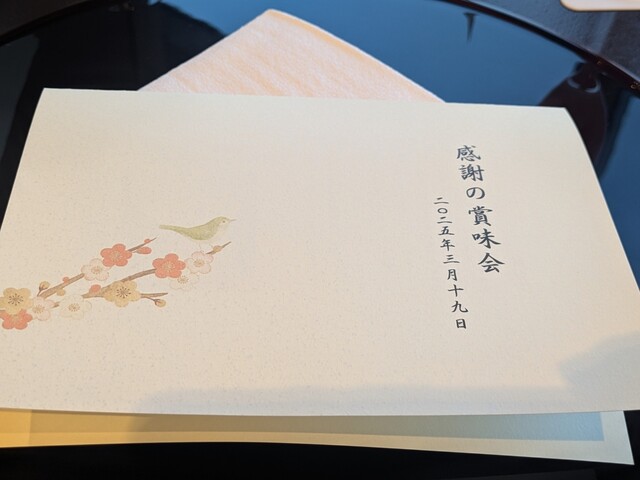 感謝の賞味会
二〇二五年三月十九日